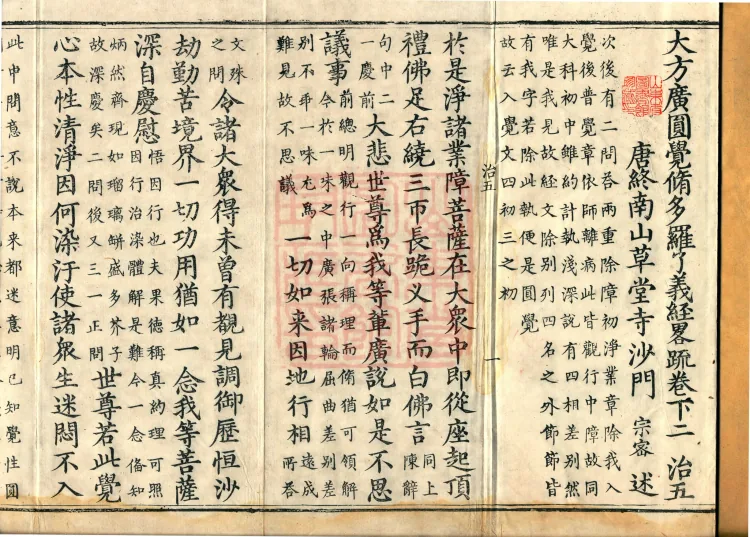 大方廣圓覺脩多羅了義經畧疏卷下二 治五
唐終南山草堂寺沙門 宗密 述
次後有二問荅兩重除障初淨業章除我入
覺後普覺章依師離病此皆觀行中障故同
大科初中雖約計執淺深説有四相差别然
唯是我見故经文除别列四名之外節節皆
有我字若除此執便是圓覺
故云入覺文四初三之初
治五
一
於是淨諸業障菩薩在大衆中即從座起頂
禮佛足右繞三帀長跪义手而白佛言 同上陳辭
句中二一慶前 大悲世尊爲我等軰廣説如是不思
議事 前總明觀行一向稱理而脩猶可領解今於一味之中廣張諸輪屈曲差别差
别不乖一味尤爲難見故不思議 一切如来因地行相 遠成所荅
文殊之問 令諸大衆得未曾有覩見調御歷恒沙
劫勤苦境界一切功用猶如一念我等菩薩
深自慶慰 悟因行也夫果德稱真約理可照因行治染體解是難今一念俻知
炳然齊現如瑠璃缾盛多芥子故深慶矣二問後又三一正問 世尊若此覺
心本性清淨因何染汙使諸衆生迷悶不入
此中問意不說本来都迷意明已知覺性圓